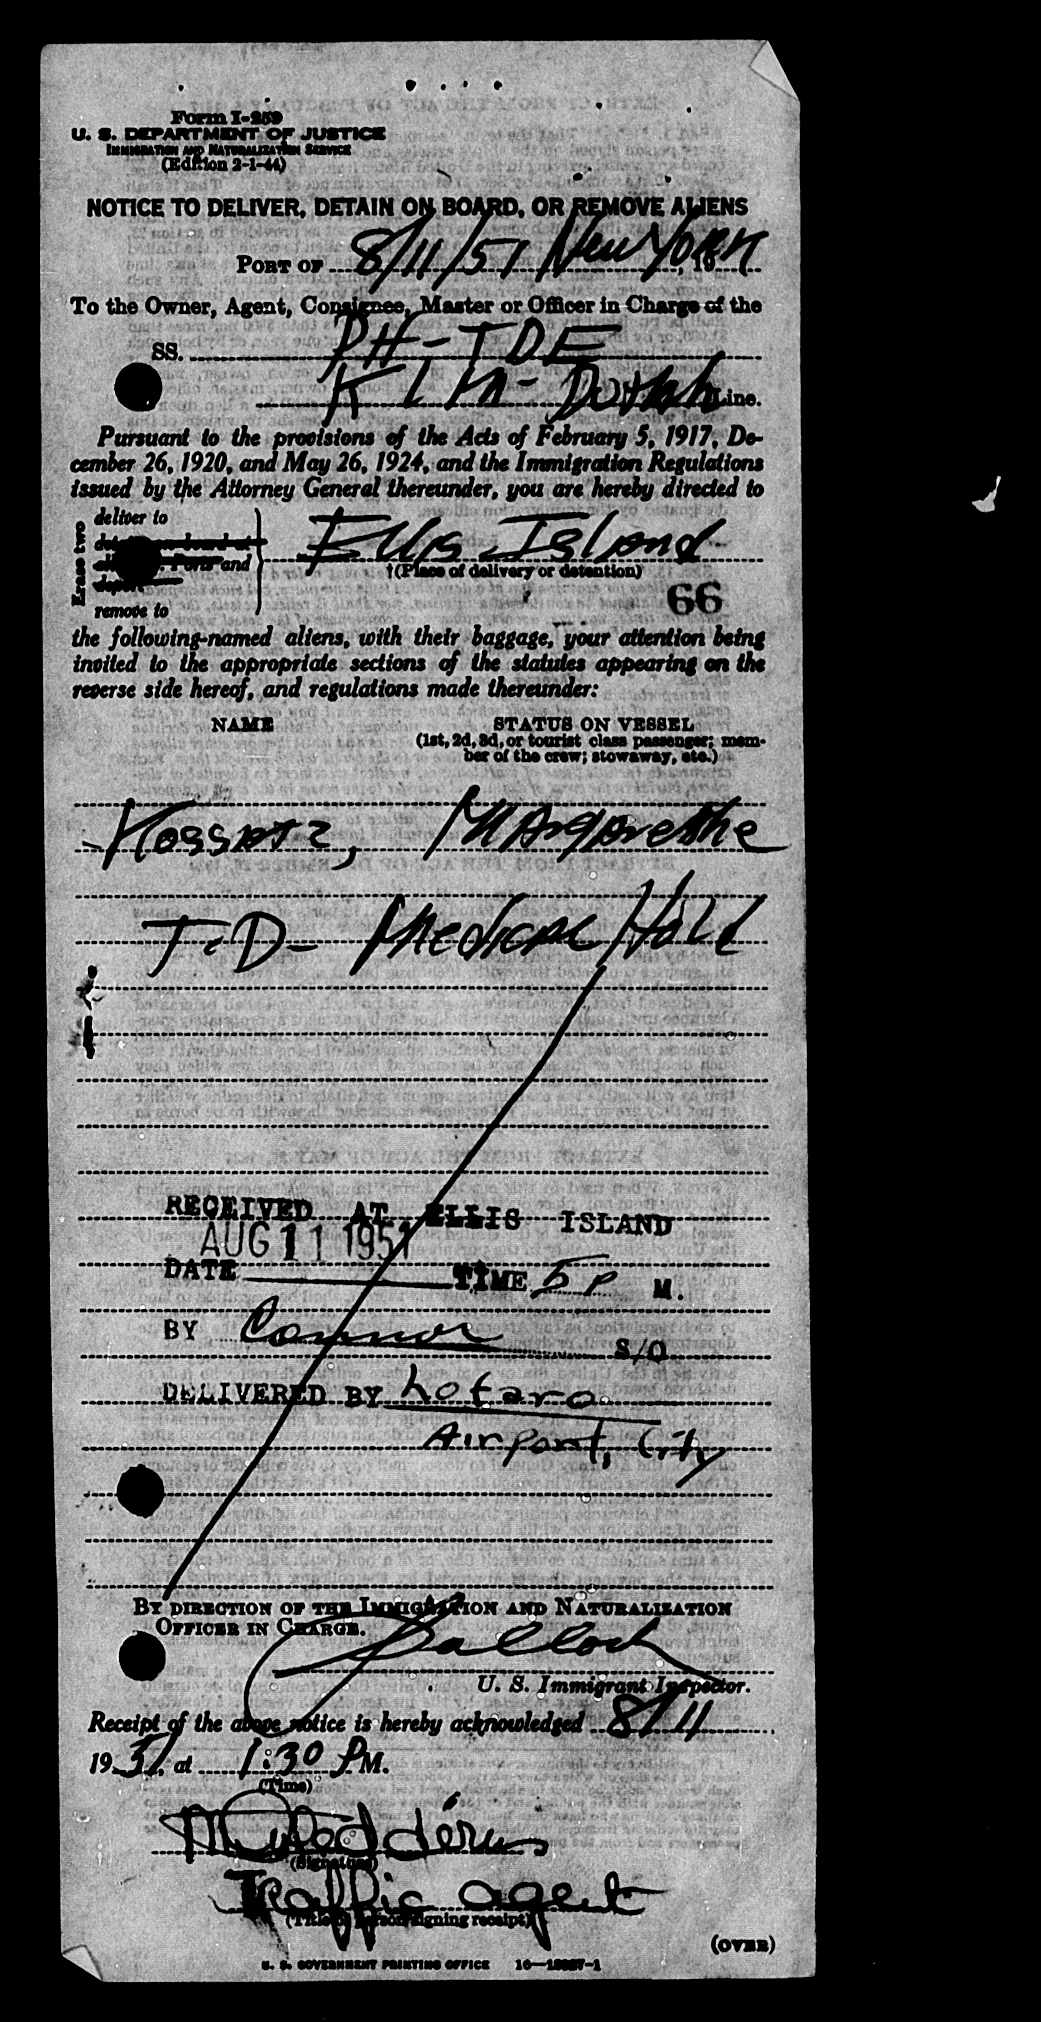 Form I-259
U. S. DEPARTMENT OF JUSTICE
IMMIGRATION AND NATURALIZATION SERVICE
(Edition 2-1-44)
NOTICE TO DELIVER, DETAIN ON BOARD, OR REMOVE ALIENS
PORT OF 8/11/51 New York, 19
To the Owner, Agent, Consignee, Master or Officer in Charge of the
SS. PH-TDE
KLM-Dutch Line.
Pursuant to the provisions of the Acts of February 5, 1917, De-
cember 26, 1920, and May 26, 1924, and the Immigration Regulations
issued by the Attorney General thereunder, you are hereby directed to
Erase two
deliver to
and
remove to
Ellis Island
†(Place of delivery or detention)
66
the following-named aliens, with their baggage, your attention being
invited to the appropriate sections of the statutes appearing on the
reverse side hereof, and regulations made thereunder:
NAME STATUS ON VESSEL
(1st, 2d, 3d, or tourist class passenger; mem-
ber of the crew; stowaway, etc.)
Margarethe
T.D- Medical Hold
RECEIVED AT ELLIS ISLAND
AUG 11 1951
DATE TIME 5 P M.
BY Connor S/O
DELIVERED BY Lotaro
Airport, City
BY DIRECTION OF THE IMMIGRATION AND NATURALIZATION
OFFICER IN CHARGE.
U. S. Immigrant Inspector.
Receipt of the above notice is hereby acknowledged 8/11
1951, at 1:30 PM.
(Time)
(Signature)
Traffic agent
(Title of person signing receipt)
(OVER)
U. S. GOVERNMENT PRINTING OFFICE